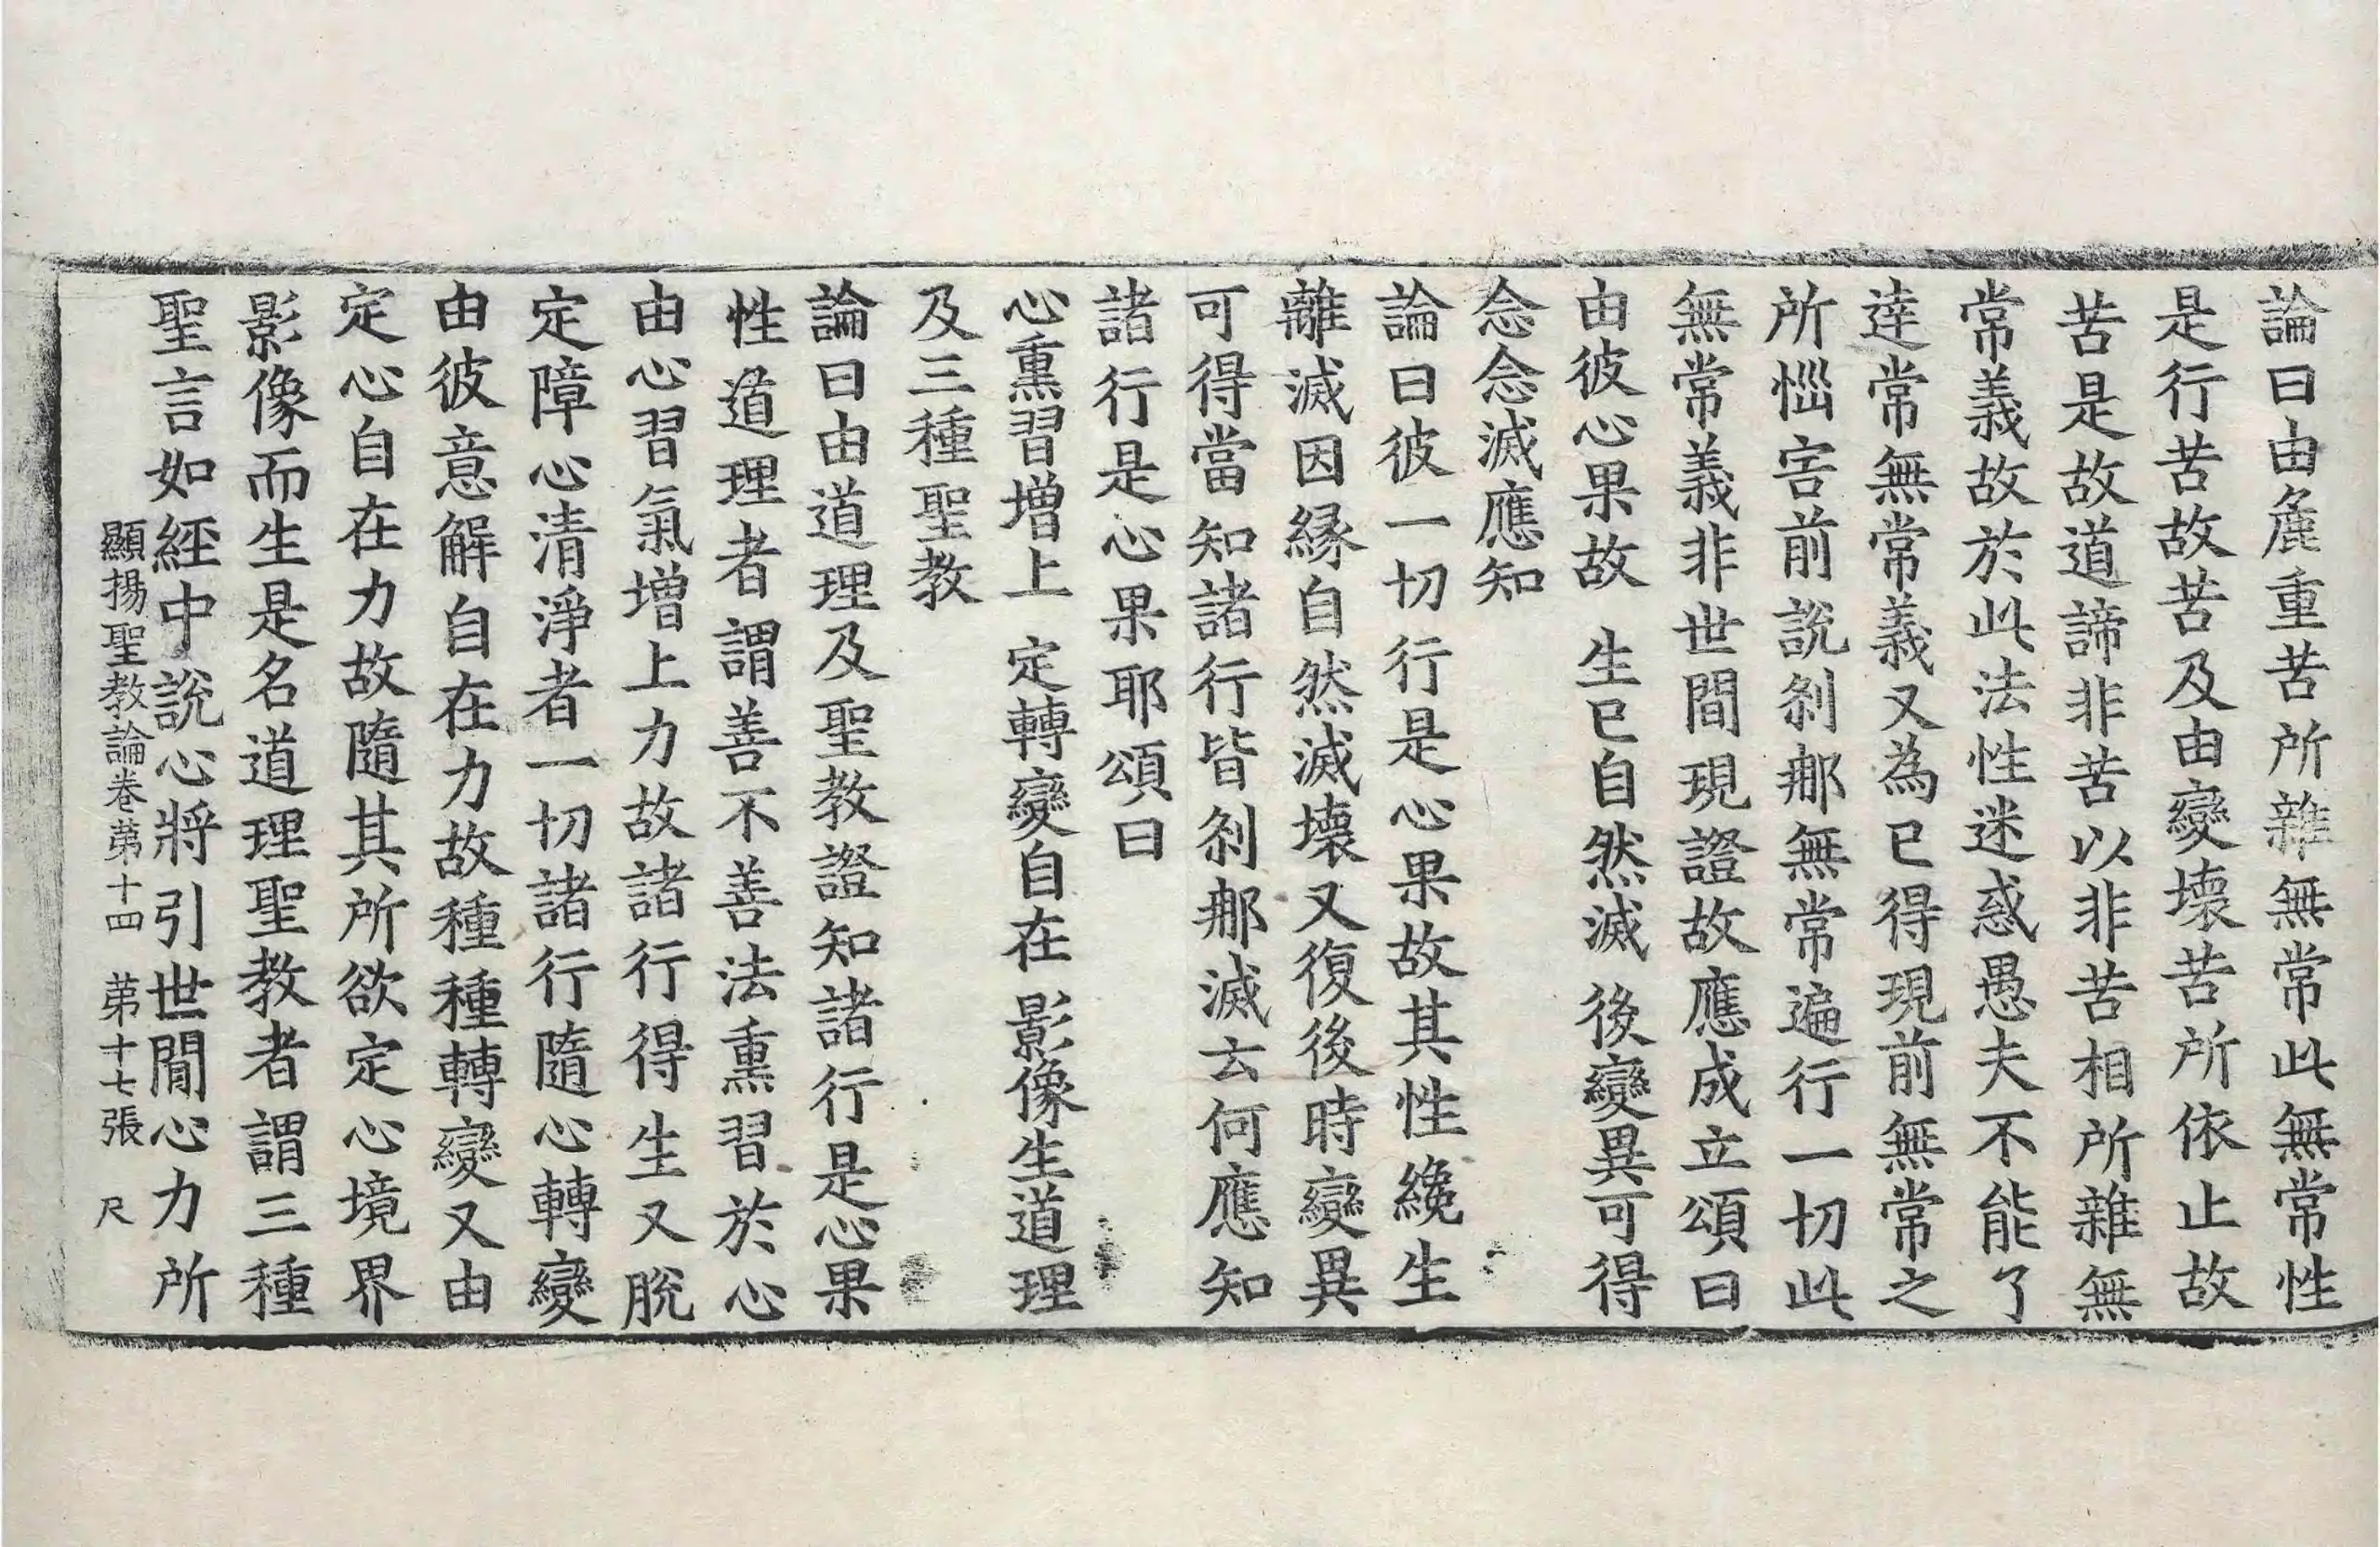 論曰由麁重苦所雜無常此無常性
是行苦故苦及由變壞苦所依止故
苦是故道諦非苦以非苦相所雜無
常義故於此法性迷惑愚夫不能了
達常無常義又為已得現前無常之
所惱害前說剎那無常遍行一切此
無常義非世間現證故應成立頌曰
由彼心果故 生已自然滅 後變異可得
念念滅應知
論曰彼一切行是心果故其性纔生
離滅因緣自然滅壞又復後時變異
可得當知諸行皆剎那滅云何應知
諸行是心果耶頌曰
心熏習增上 定轉變自在 影像生道理
及三種聖教
論曰由道理及聖教證知諸行是心果
性道理者謂善不善法熏習於心
由心習氣增上力故諸行得生又脫
定障心清淨者一切諸行隨心轉變
由彼意解自在力故種種轉變又由
定心自在力故隨其所欲定心境界
影像而生是名道理聖教者謂三種
聖言如經中說心將引世間心力所
顯揚聖教論卷第十四 第十七張 尺